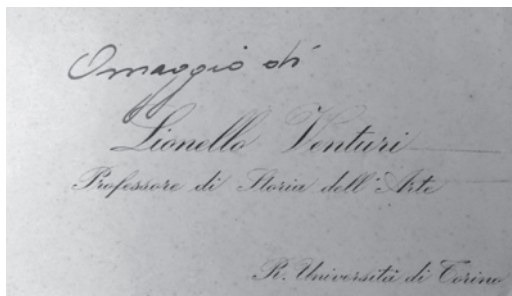 Omaggio di
Lionello Venturi
Professore di Storia dell'Arte
R. Università di Torino